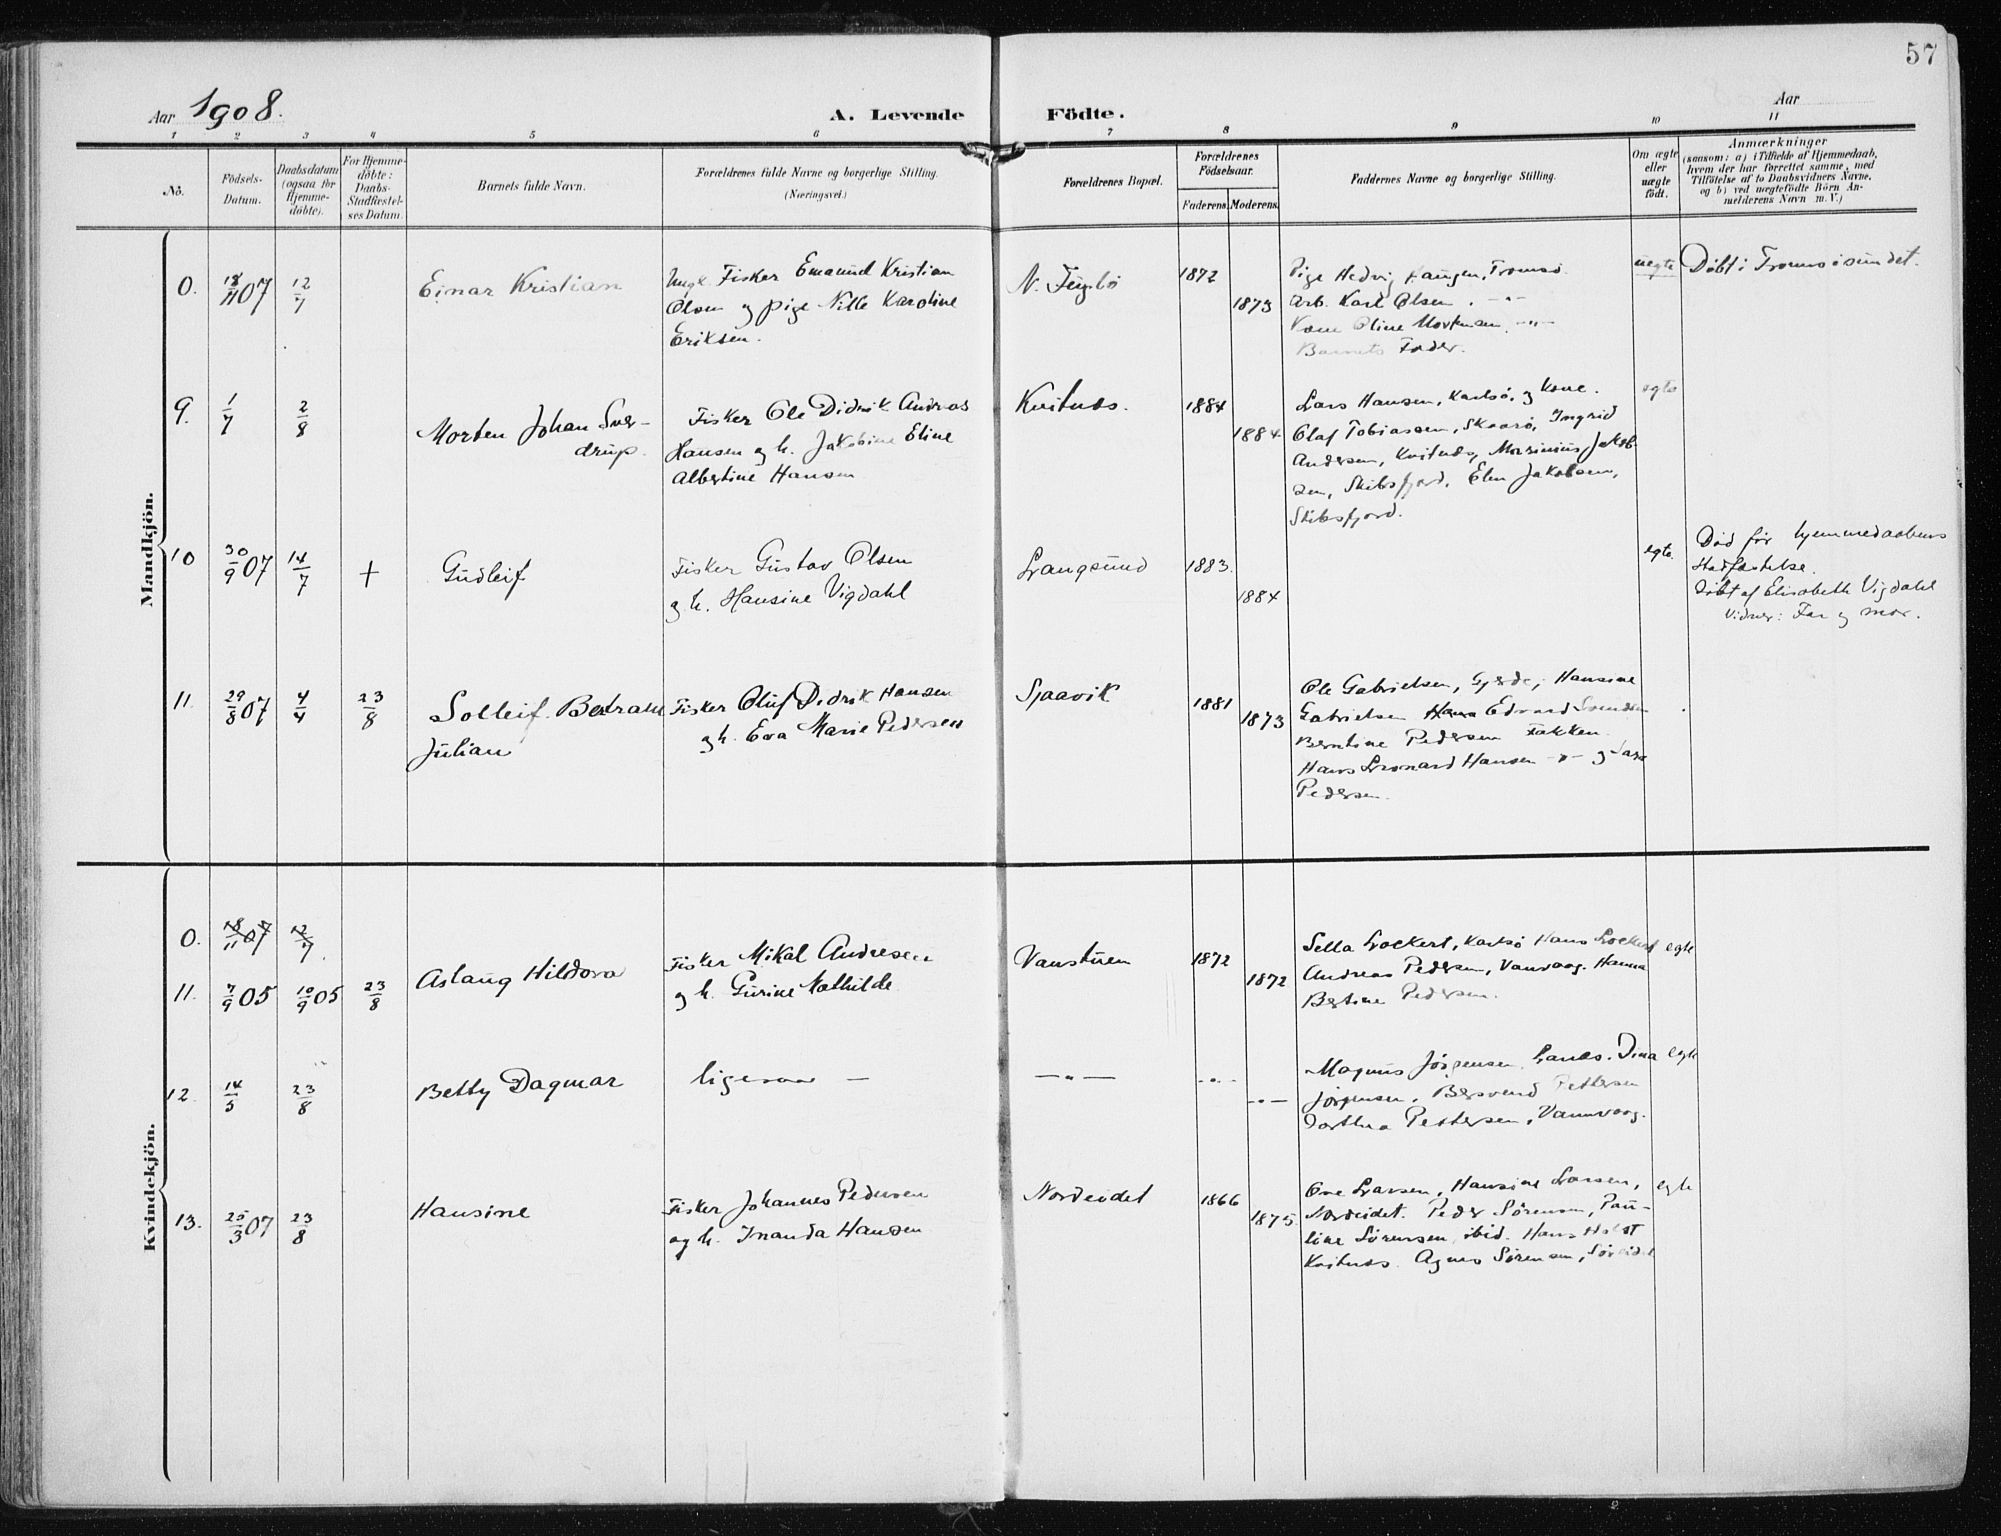 57
Aar 1908.
A. Levende Födte.
Aar
1 2 3 4 5 6 7 8 9 10 11
Nô.
Födsels-
Datum.
Daabsdatum
(ogsaa for
Hjemme-
döbte).
For Hjemme-
döbte:
Daabs-
Stadfæstel-
ses Datum.
Barnets fulde Navn.
Forældrenes fulde Navne og borgerlige Stilling.
(Næringsvei.)
Forældrenes Bopæl.
Forældrenes
Födselsaar.
Faderens. Moderens.
Faddernes Navne og borgerlige Stilling.
Om ægte
eller
uægte
födt.
Anmærkninger
(saasom: a) i Tilfælde af Hjemmedaab,
hvem der har forrettet samme, med
Tilföielse af to Daabsvidners Navne,
og b) ved uægtefödte Börn An-
melderens Navn m. V.)
Mandkjön.
0. 18/11 07 12/7
Einar Kristian
Ungk. Fisker Emanuel Kristian
Olsen og pige Nille Karoline
Eriksen.
1872
1873
Pige Hedvig Haugen, Tromsø.
Arb. Karl Olsen. -"-
Kone Oline Morkman. -"-
Barnets Fader.
uegte
Døbt i Tromsøisundet.
9. 1/7 2/8
Morten Johan Sver-
drup.
Fisker Ole Didrik Andreas
Hansen og h. Jakobine Eline
Albertine Hansen
Kvitnes.
1884
1884.
Lars Hansen, Karlsø, og Kone.
Olaf Tobiassen, Skaarø, Ingrid
Andersen, Kvitnes, Marinius Jakob-
sen, Skibsfjord, Elen Jakobsen,
Skibsfjord.
egte
10 30/9 07 14/7 +
Gudleif
Fisker Gustav Olsen
og h. Hansine Vigdahl
Langsund
1883.
1884
egte.
Død før hjemmedaabens
stadfæstelse.
Døbt af Elisabeth Vigdahl
Vidner: Far og mor.
11. 29/8 07 4/4 23/8
Solleif Bertram
Julian
Fisker Oluf Didrik Hansen
og h. Eva Marie Pedersen
Sjaavik
1881
1873
Ole Gabrielsen, Gjerde, Hansine
Gabrielsen Edvard Svendsen
Berntine Pedersen Fakken.
Hans Leonard Hansen -"- og Sara
Pedersen.
Kvindekjön.
0. 18/11 07 12/7
11. 7/9 05 10/9 05 23/8
Aslaug Hildora
Fisker Mikal Andresen
og h. Gurine Mathilde.
Vanstuen
1872
1872
Sella Lockert, Karlsø Hans Lockert
Andreas Pedersen, Vanvaag. Hanna
Bertine Pedersen.
egte
12. 14/5 23/8
Betty Dagmar
ligesaa -
-"-
-"-
-"-
Magnus Jørgensen, Lanes. Dina
Jørgensen, Bersvend Pettersen
Dorthea Pettersen, Vannvaag.
egte
13. 25/3 07 23/8
Hansine
Fisker Johannes Pedersen
og h. Inanda Hansen
Nordeidet
1866
1875.
Ove Larsen, Hansine Larsen,
Nordeidet. Peder Sørensen, Pau-
line Sørensen, ibid. Hans Holst
Kvitnes. Agnes Sørensen, Søreidet
egte